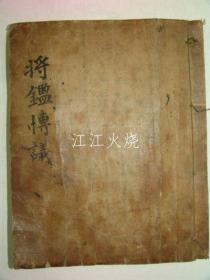 将鑑博議
江江火烧